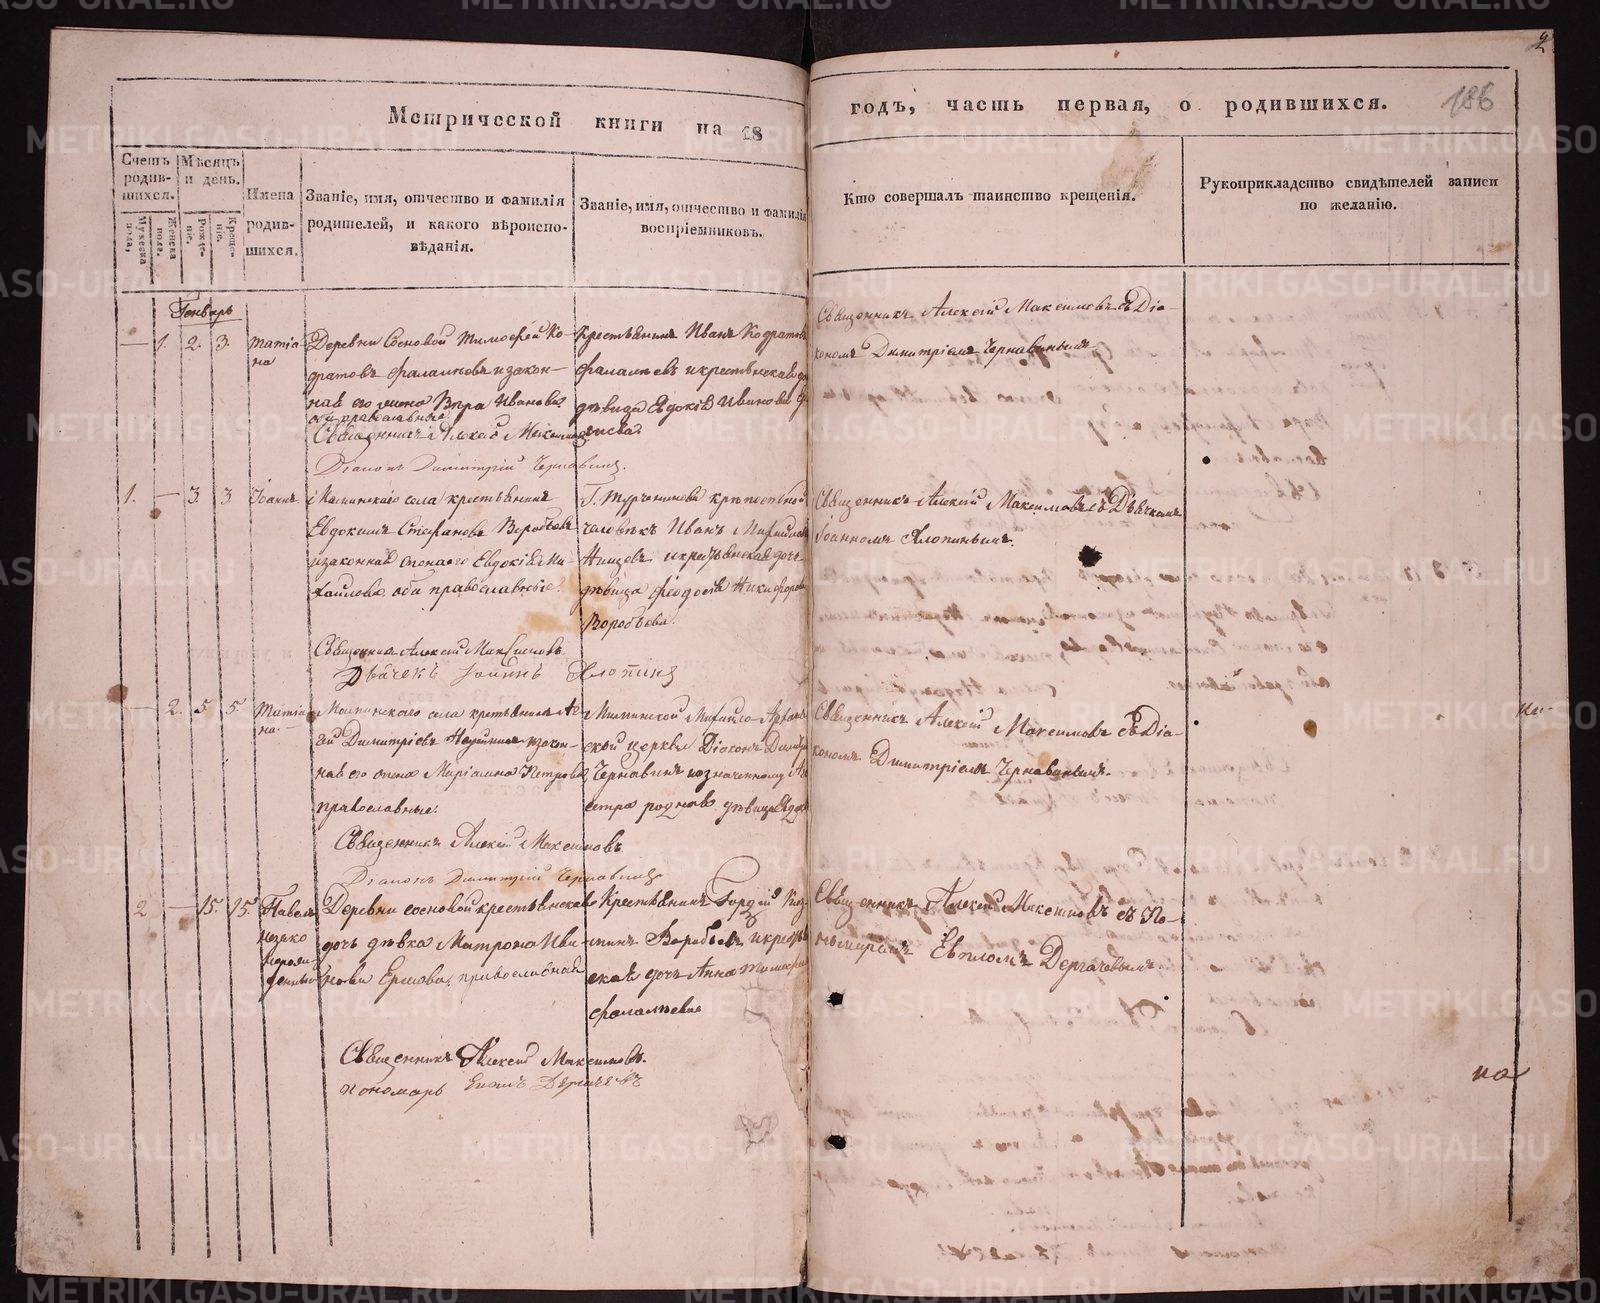 Метрической книги на 18 годъ, часть первая, о родившихся.
2
186
Счетъ родив-шихся.
Мужеска пола,
Женска пола.
Мѣсяцъ и день.
Рожде-ніе.
Креще-ніе.
Имена родив-шихся.
Званіе, имя, отчество и фамилія
родителей, и какого вѣроиспо-
вѣданія.
Званіе, имя, отчество и фамилія
воспріемниковъ.
Кто совершалъ таинство крещенія.
Рукоприкладство свидѣтелей записи
по желанію.
Генварь
— 1. 2. 3.
Татіа
на
Деревни Сосновой Тимофей Ко-
дратовъ и закон-
ная его жена Вѣра Иванова
оба православные
Священникъ Алексей Максимовъ
Діаконъ Димитрій Чернавинъ.
Крестьянинъ Иванъ Кодратовъ
и крестьянская
дѣвица Евдокія Иванова
Священникъ Алексій Максимовъ съ Діа-
кономъ Димитріемъ Чернавинымъ
1. — 3. 3
Іоаннъ
села крестьянинъ
Евдокимъ Стефановъ Воробьевъ
и законная жена его Евдокія Ми-
хайлова оба православные.
Священникъ Алексій Максимовъ
Дьячекъ Іоаннъ Хлопинъ
Г. Турчанинова крѣпостной
человѣкъ Иванъ Михайловъ
и крестьянская дочь
дѣвица Феодосія Никифорова
Воробьева.
Священникъ Алексій Максимовъ съ Дьячкомъ
Іоанномъ Хлопинымъ.
— 2. 5 5
Татіа
на
села крестьянинъ
Димитріевъ и закон-
ная его жена Маріамна Петрова
православные.
Священникъ Алексій Максимовъ
Діаконъ Димитрій Чернавинъ
церкви Діаконъ Димитрій
Чернавинъ и означенному
сестра родная дѣвица
Священникъ Алексій Максимовъ съ Діа-
кономъ Димитріемъ Чернавинымъ.
2 — 15. 15.
Павелъ
незако
норож-
денный
Деревни Сосновой крестьянская
дочь дѣвка Матрона Ива
нова Ершова, православная
Священникъ Алексій Максимовъ.
Пономарь Евплъ Дергачевъ
Крестьянинъ Гордій
Воробьевъ, и крестьян
ская дочь Анна
Священникъ Алексій Максимовъ съ По-
номаремъ Евпломъ Дергачевымъ
на
METRIKI.GASO-URAL.RU